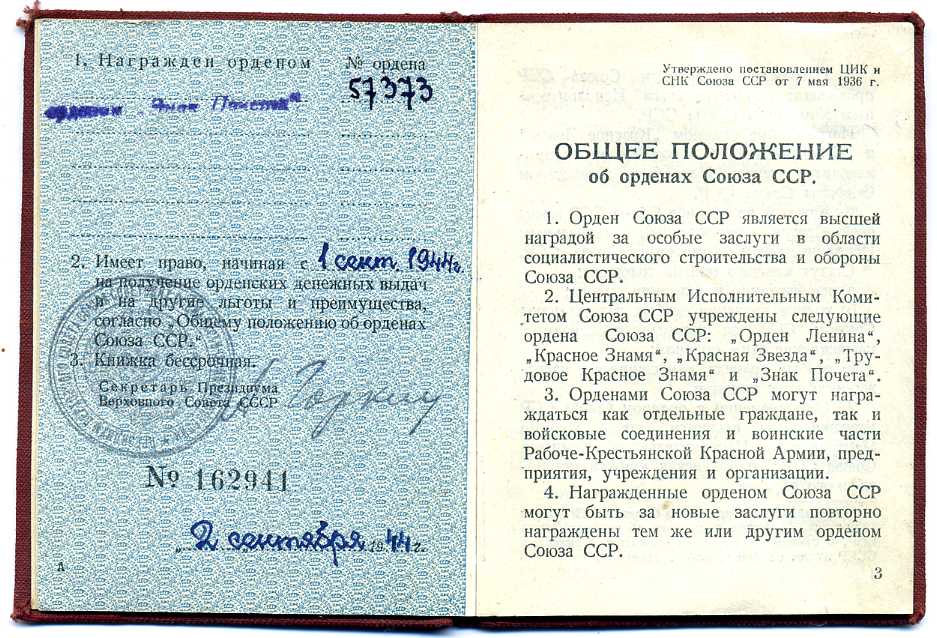 1. Награжден орденом
№ ордена
орденом „Знак Почета“
57373
2. Имеет право, начиная с 1 сент. 1944г.
на получение орденских денежных выдач
и на другие льготы и преимущества,
согласно „Общему положению об орденах
Союза ССР.“
3. Книжка бессрочная.
Секретарь Президиума
Верховного Совета СССР
№ 162941
„2 сентября 1944 г.
А
Утверждено постановлением ЦИК и
СНК Союза ССР от 7 мая 1936 г.
ОБЩЕЕ ПОЛОЖЕНИЕ
об орденах Союза ССР.
1. Орден Союза ССР является высшей
наградой за особые заслуги в области
социалистического строительства и обороны
Союза ССР.
2. Центральным Исполнительным Коми-
тетом Союза ССР учреждены следующие
ордена Союза ССР: „Орден Ленина“,
„Красное Знамя“, „Красная Звезда“, „Тру-
довое Красное Знамя“ и „Знак Почета“.
3. Орденами Союза ССР могут награ-
ждаться как отдельные граждане, так и
войсковые соединения и воинские части
Рабоче-Крестьянской Красной Армии, пред-
приятия, учреждения и организации.
4. Награжденные орденом Союза ССР
могут быть за новые заслуги повторно
награждены тем же или другим орденом
Союза ССР.
3